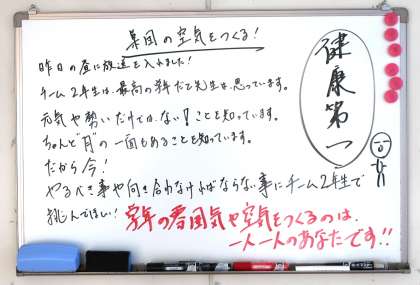 集団の空気をつくる!
昨日の昼に放送を入れました!
チーム2年生は、最高の学年だと先生は思っています。
元気や勢いだけではない!ことを知っています。
ちゃんと"月"の一面もあることを知っています。
だから今!
やるべき事や向き合わなければならない事にチーム2年生で
挑んでほしい!
学年の雰囲気や空気をつくるのは、
一人一人のあなたです!!
健康第一